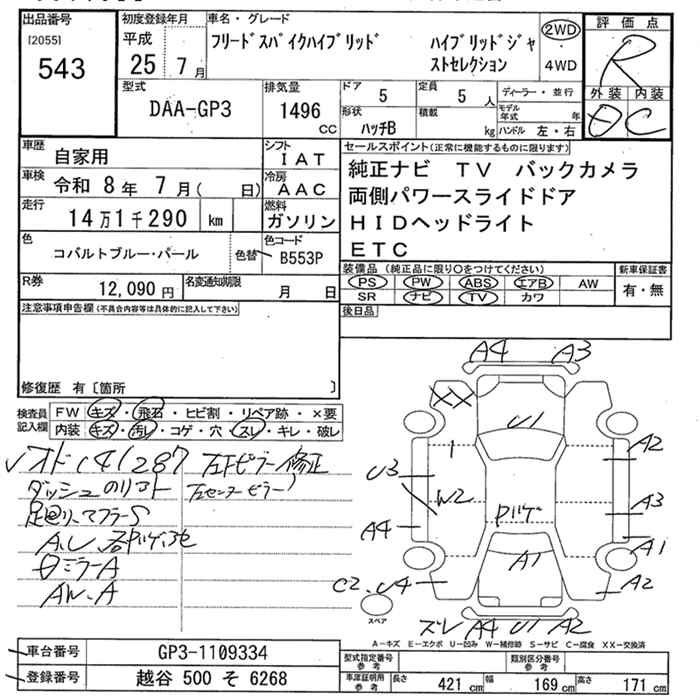 出品番号
[2055]
543
初度登録年月
平成
25年7月
車名・グレード
フリードスパイクハイブリッド ハイブリッドジャ
ストセレクション
2WD
・4WD
評価点
R
外装 内装
C
型式
DAA-GP3
排気量
1496
CC
ドア 5
定員 5 人
ディーラー・並行
形状 ハッチB
積載 kg
モデル年式 年
ハンドル 左・右
車歴 自家用
シフト IAT
車検 令和 8年 7月( 日)
冷房 AAC
走行 14万1千290 km
燃料 ガソリン
色 コバルトブルー・パール
色替
色コード B553P
R券 12,090円
名変通知期限 月 日
セールスポイント(正常に機能するものに限ります)
純正ナビ TV バックカメラ
両側パワースライドドア
HIDヘッドライト
ETC
装備品(純正品に限り○をつけてください)
新車保証書
PS PW ABS エアB AW
有・無
SR ナビ TV カワ
後日品
注意事項申告欄(不具合内容等は具体的に記入して下さい)
修復歴 有〔箇所 〕
検査員
記入欄
FW キズ・飛石・ヒビ割・リペア跡・×要
内装 キズ・汚レ・コゲ・穴・スレ・キレ・破レ
オド(141287
左Fピラー修正
ダッシュのリフト
左センターピラー
足廻り、マフラーS
ミラーA
AW.A
A4 A3
XX
U1
1
A2
U3
W2
A3
A4
A1
A1
C2、U4
A2
スペア
ズレ A4 U1 A2
A-キズ E-エクボ U-凹み W-補修跡 S-サビ C-腐食 XX-交換済
車台番号 GP3-1109334
登録番号 越谷 500 そ 6268
型式指定番号
参考
類別区分番号
参考
車庫証明用
参考
長さ 421 cm
幅 169 cm
高さ 171 cm